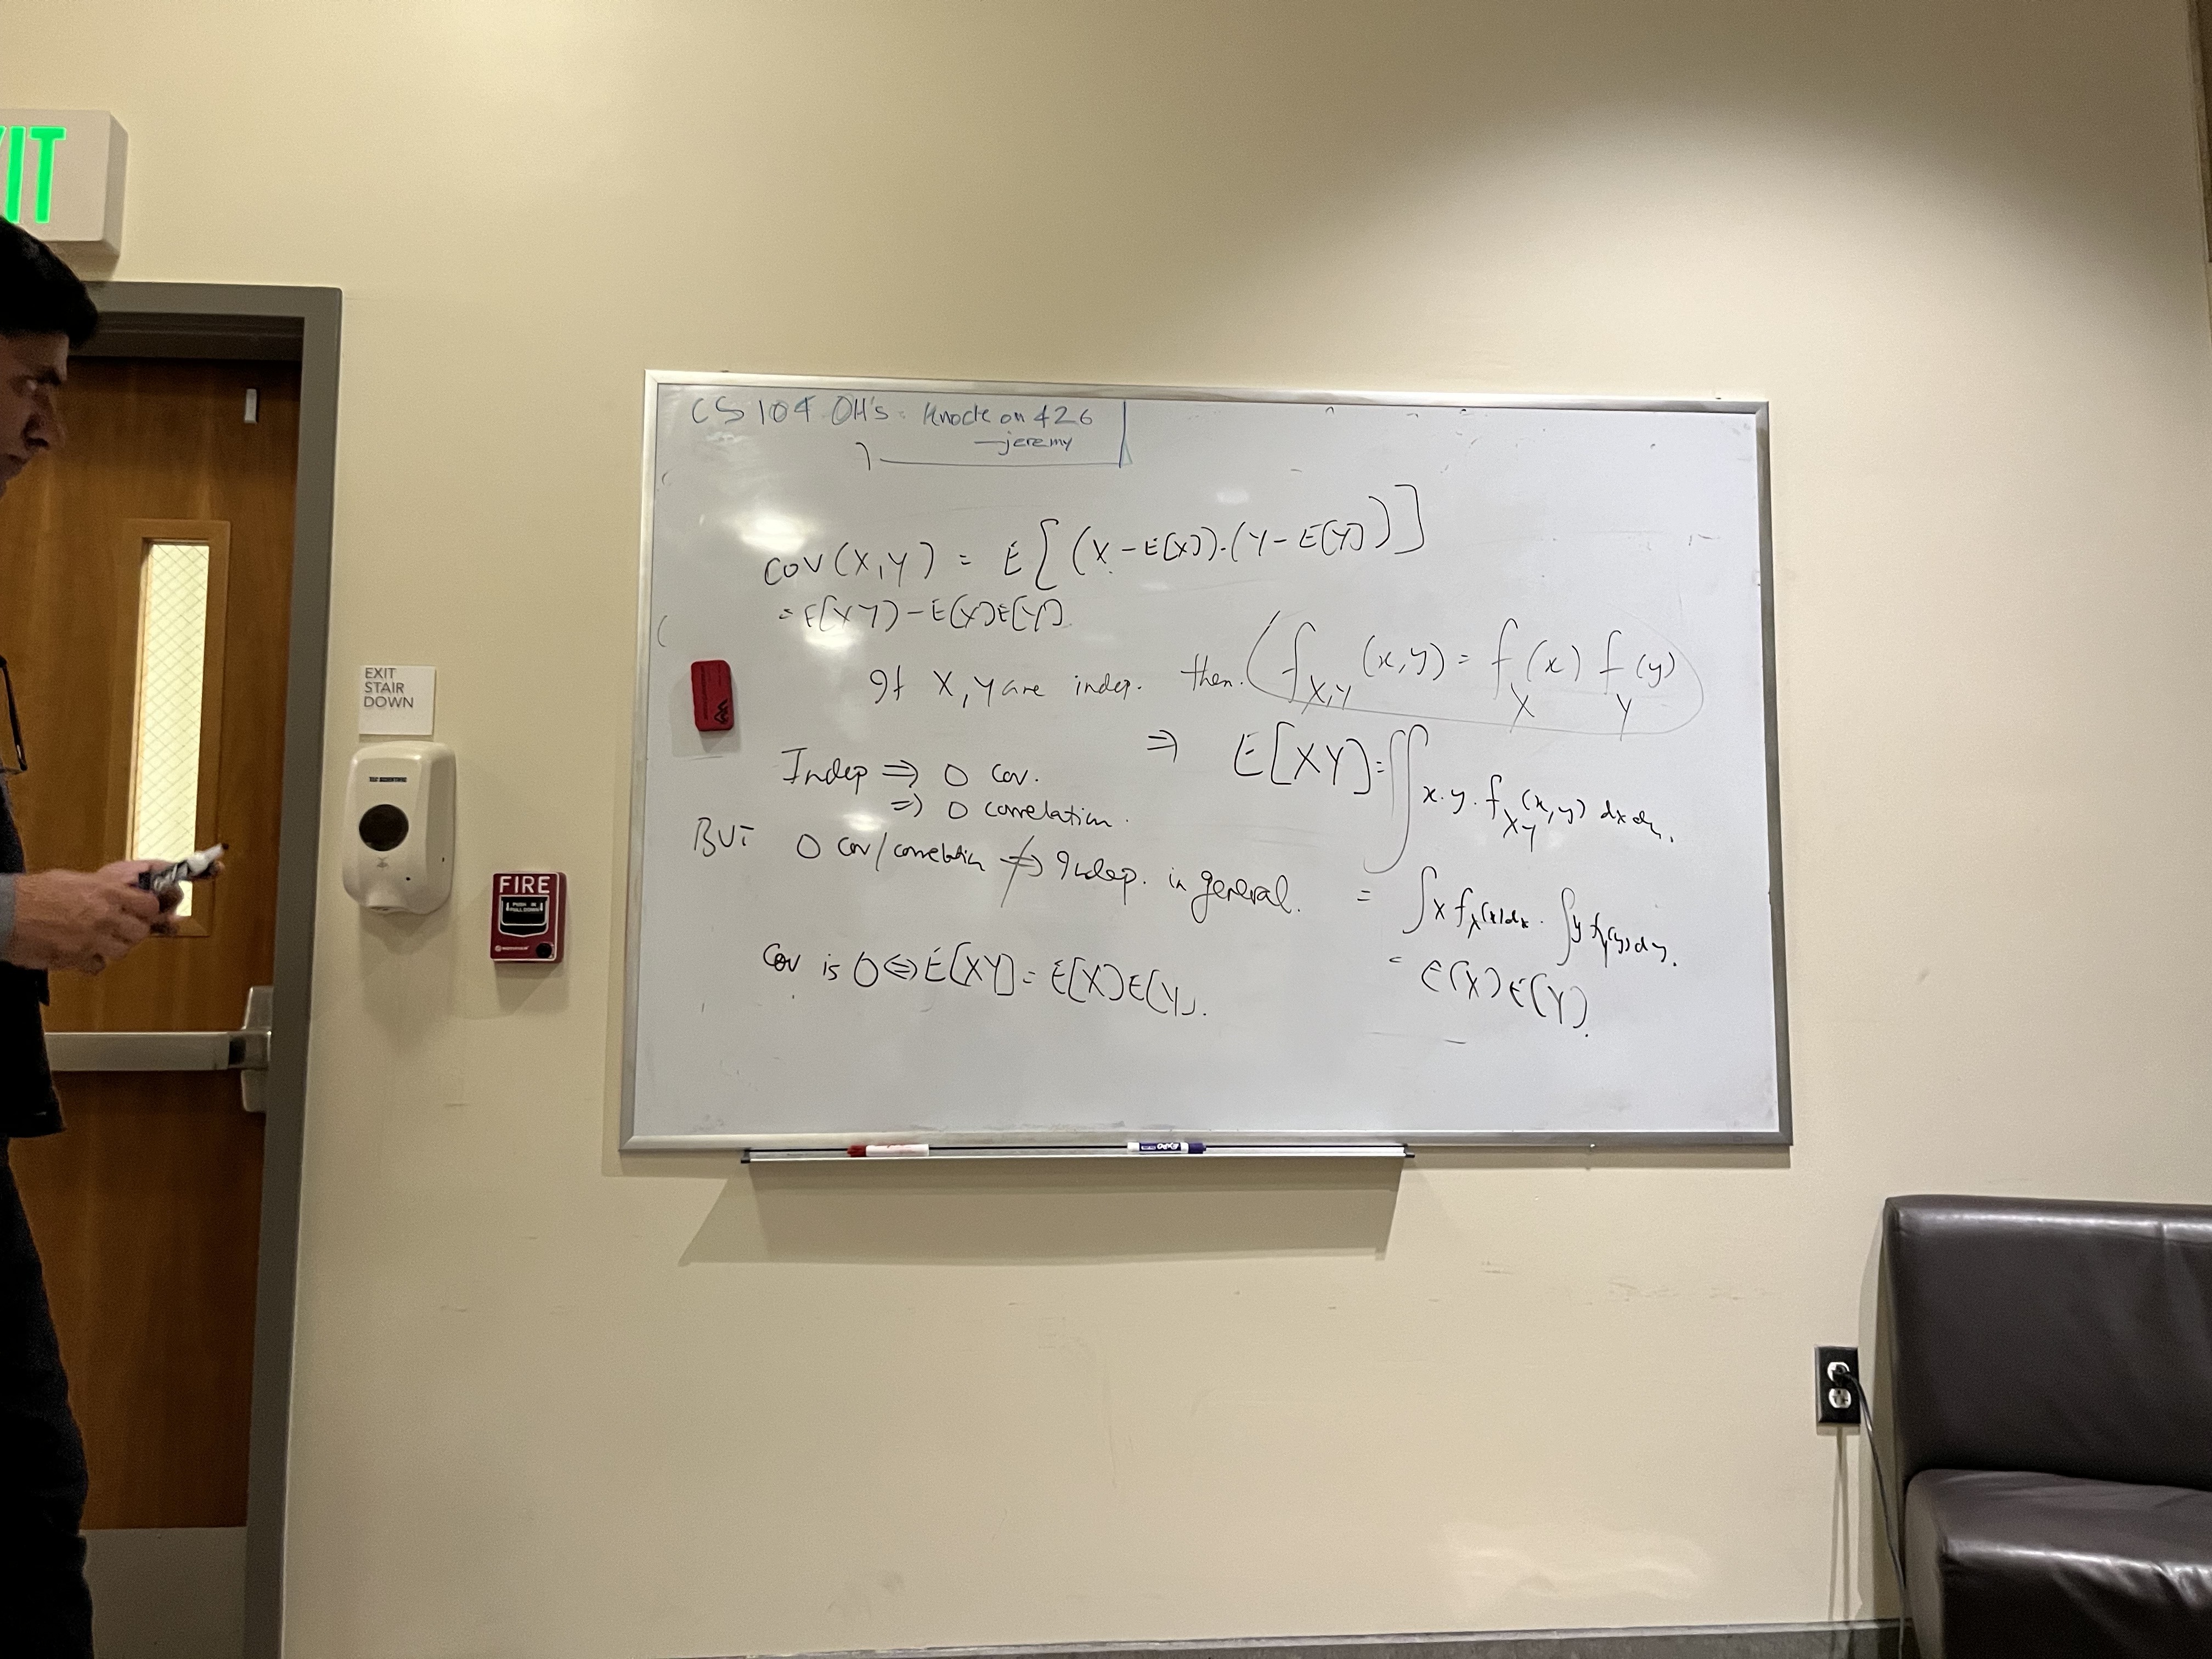 XIT
EXIT
STAIR
DOWN
FIRE
PUSH IN
PULL DOWN
CS 104 OH's: Knock on 426
—jeremy
COV(X,Y) = E[(X-E[X])·(Y-E[Y])]
= E[XY]-E[X]E[Y].
If X,Y are indep. then. f_{X,Y}(x,y) = f_X(x) f_Y(y)
⇒ E[XY] = ∬ x·y·f_{XY}(x,y) dx dy.
= ∫x f_X(x)dx · ∫y f_Y(y)dy.
= E[X]E[Y].
Indep ⇒ 0 Cov.
⇒ 0 correlation.
BUT 0 cov/correlation ⇏ Indep. in general.
Cov is 0 ⇔ E[XY] = E[X]E[Y].
EXPO